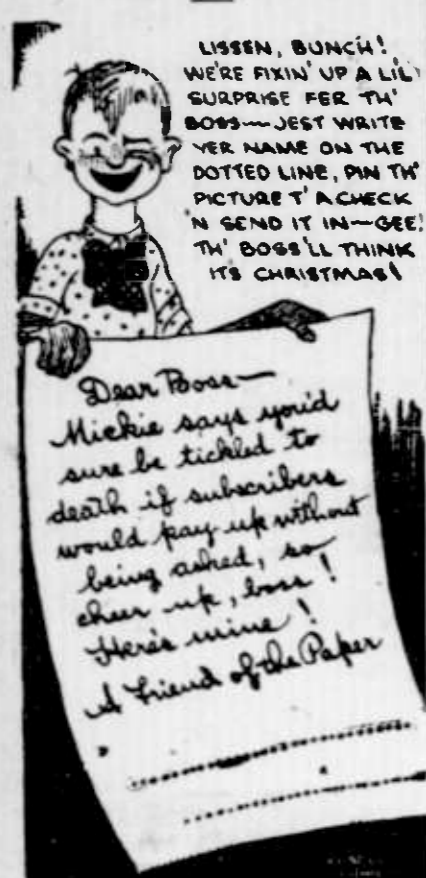 LISSEN, BUNCH!
WE'RE FIXIN' UP A LIL'
SURPRISE FER TH'
BOSS—JEST WRITE
YER NAME ON THE
DOTTED LINE, PIN TH'
PICTURE T' A CHECK
'N SEND IT IN—GEE!
TH' BOSS'LL THINK
ITS CHRISTMAS!
Dear Boss—
Mickie says you'd
sure be tickled to
death if subscribers
would pay up without
being asked, so
cheer up, boss!
Here's mine!
A Friend of the Paper